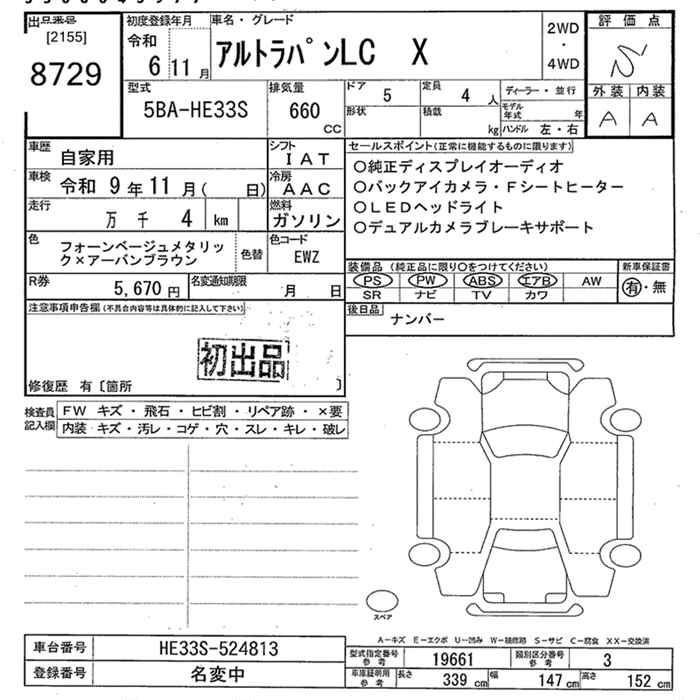 出品番号
[2155]
8729
初度登録年月
令和
6 11 月
車名・グレード
アルトラパンLC X
2WD
・
4WD
評価点
S
外装 内装
A A
型式
5BA-HE33S
排気量
660
CC
ドア
5
定員
4 人
形状
積載
kg
ディーラー・並行
モデル年式 年
ハンドル 左・右
車歴
自家用
シフト
IAT
車検
令和 9年11月( 日)
冷房
AAC
走行
万 千 4 km
燃料
ガソリン
色
フォーンベージュメタリッ
ク×アーバンブラウン
色替
色コード
EWZ
R券
5,670 円
名変通知期限
月 日
セールスポイント(正常に機能するものに限ります)
○純正ディスプレイオーディオ
○バックアイカメラ・Fシートヒーター
○LEDヘッドライト
○デュアルカメラブレーキサポート
装備品 (純正品に限り○をつけてください)
新車保証書
PS PW ABS エアB AW
SR ナビ TV カワ
有・無
後日品
ナンバー
注意事項申告欄(不具合内容等は具体的に記入して下さい)
初出品
修復歴 有〔箇所 〕
検査員
記入欄
FW キズ・飛石・ヒビ割・リペア跡・×要
内装 キズ・汚レ・コゲ・穴・スレ・キレ・破レ
スペア
A-キズ E-エクボ U-凹み W-補修跡 S-サビ C-腐食 XX-交換済
車台番号
HE33S-524813
登録番号
名変中
型式指定番号
参考
19661
類別区分番号
参考
3
車庫証明用
参考
長さ
339 cm
幅
147 cm
高さ
152 cm